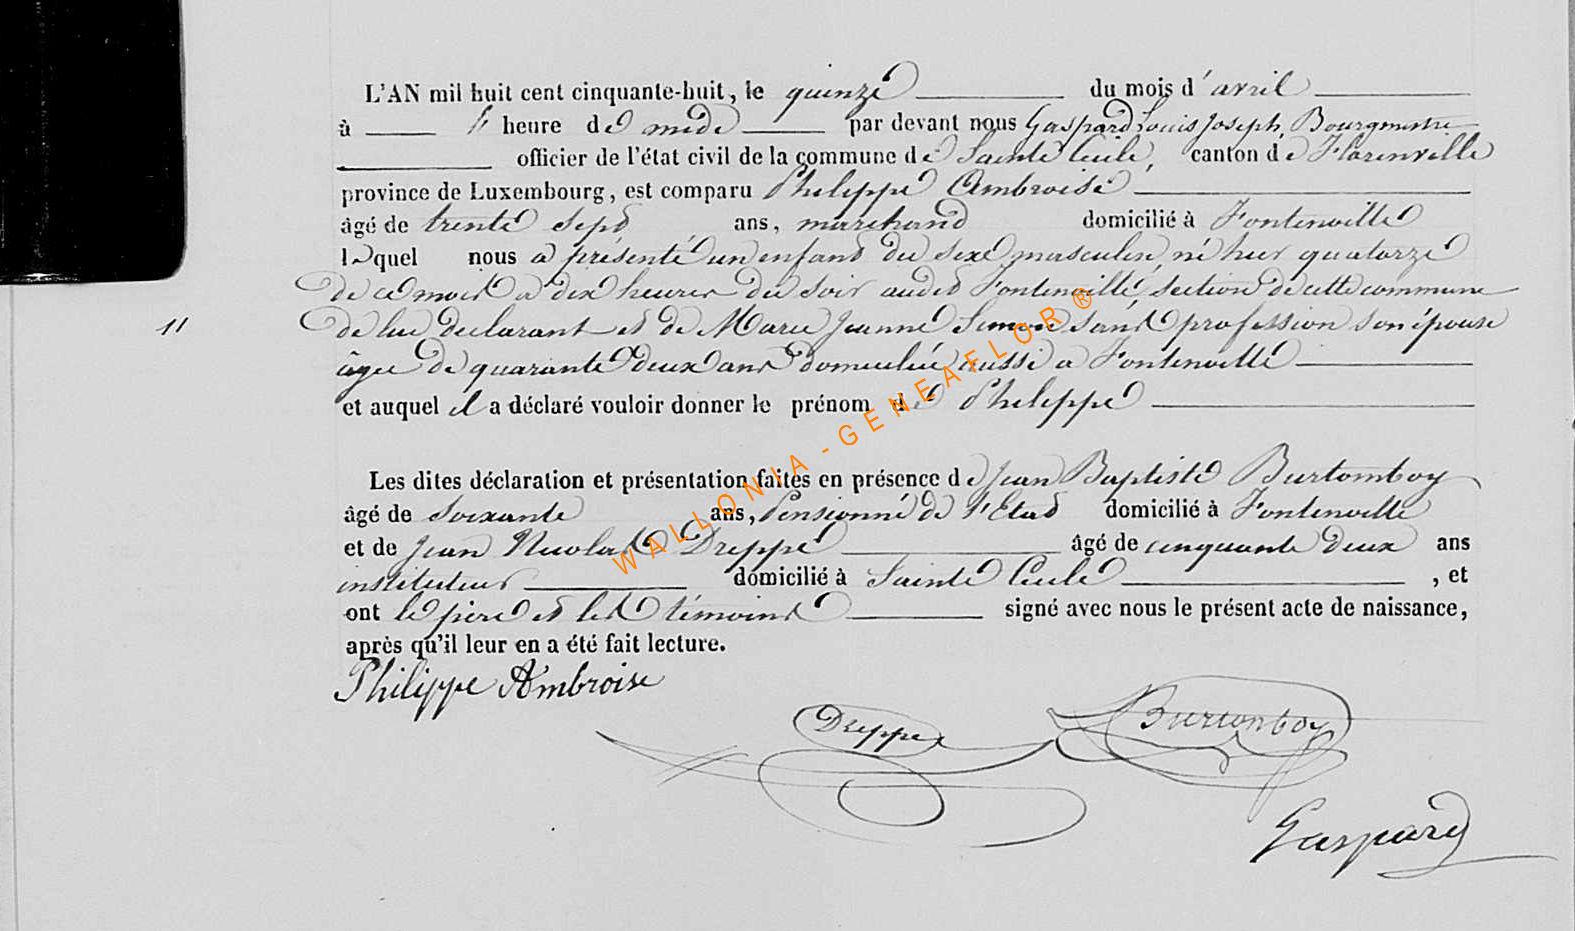 L'AN mil huit cent cinquante-huit, le quinze du mois d'avril
à heure de midi par devant nous Gaspard Louis Joseph, Bourgmestre
officier de l'état civil de la commune de Sainte Cecile, canton de Florenville
province de Luxembourg, est comparu Philippe Ambroise
âgé de trente sept ans, marchand domicilié à Fontenoille
lequel nous a présenté un enfant du sexe masculin, né hier quatorze
de ce mois à dix heures du soir audit Fontenoille, section de cette commune
de lui déclarant et de Marie Jeanne sans profession son épouse
âgée de quarante deux ans domiciliée aussi a Fontenoille
et auquel il a déclaré vouloir donner le prénom de Philippe
11
Les dites déclaration et présentation faites en présence de Jean Baptiste Burtomboy
âgé de soixante ans, Pensionné de l'Etat domicilié à Fontenoille
et de Jean Nicolas Dreppe âgé de cinquante deux ans
instituteur domicilié à Sainte Cecile, et
ont le père et les témoins signé avec nous le présent acte de naissance,
après qu'il leur en a été fait lecture.
Philippe Ambroise
Dreppe Burtomboy
Gaspard
WALLONIA - GENEAFLOR ®